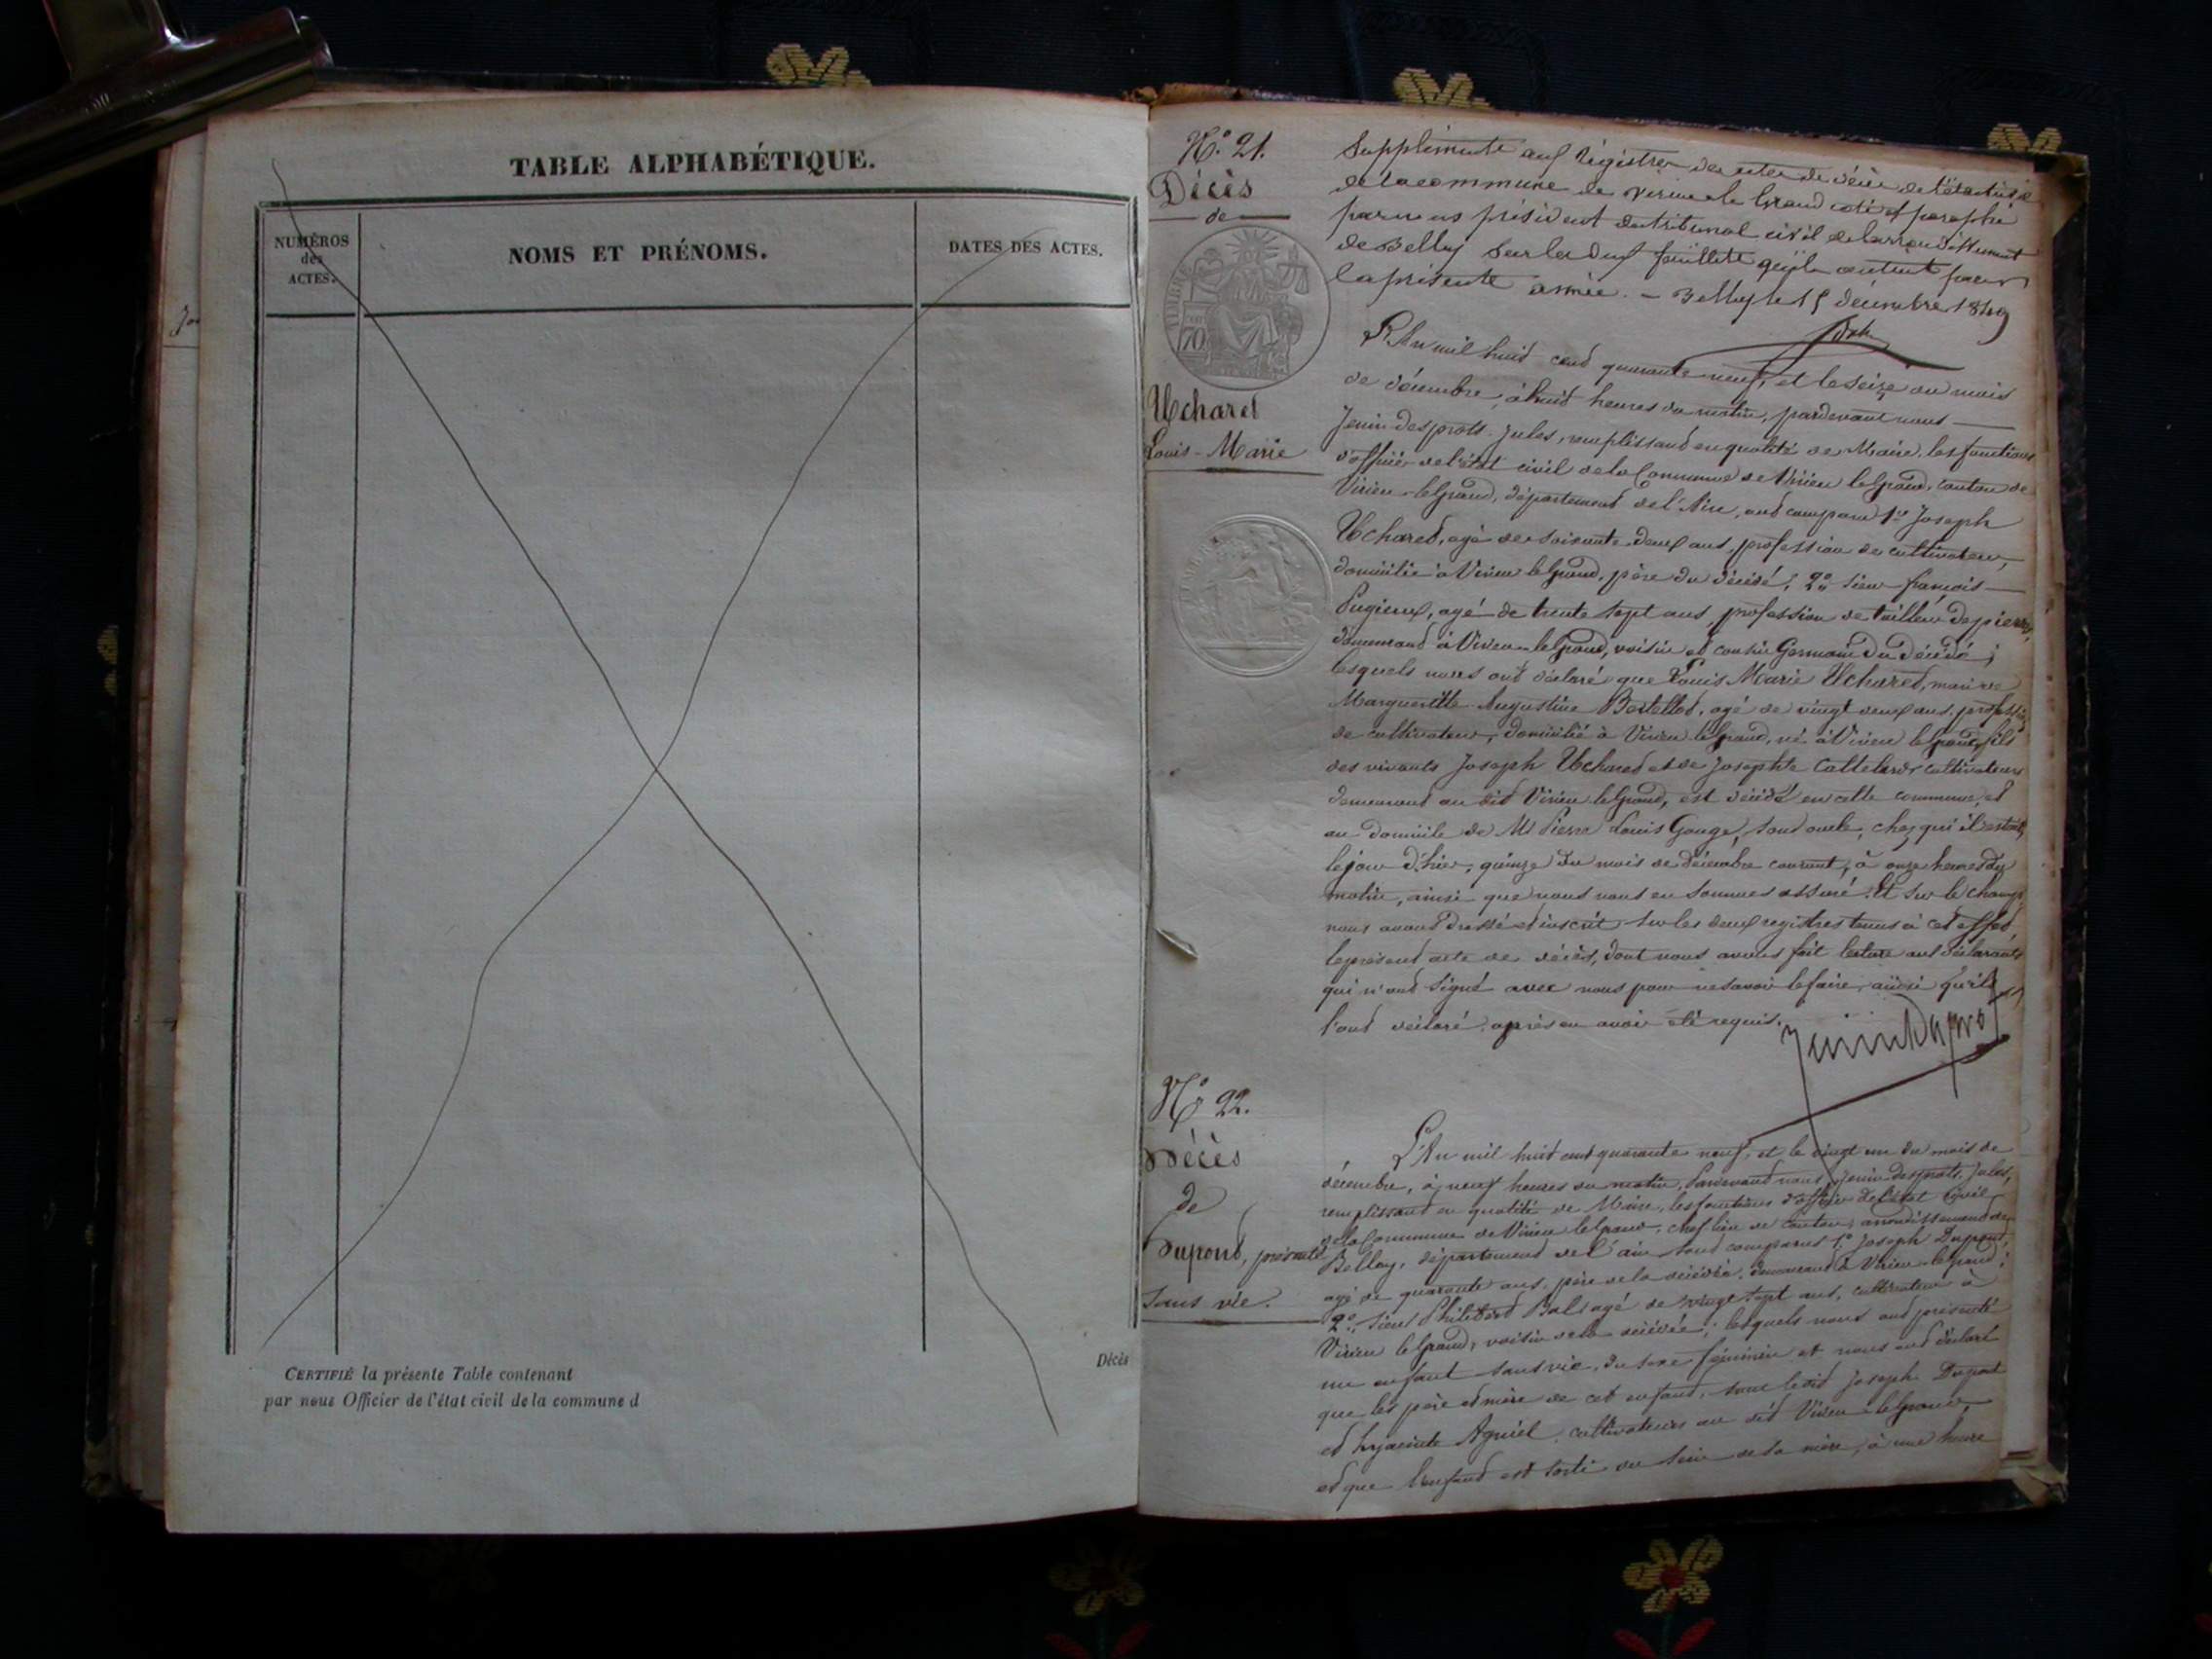 TABLE ALPHABÉTIQUE.
NUMÉROS
des
ACTES.
NOMS ET PRÉNOMS.
DATES DES ACTES.
CERTIFIÉ la présente Table contenant
par nous Officier de l'état civil de la commune d
Décès
N.° 21.
Décès
de
Uchard
Louis-Marie
Supplémente aux Régistres des actes de décès de l'état civil
de la commune de virieu le Grand coté et paraphé
par nous président du tribunal civil de l'arrondissement
de Belley sur les deux feuillets qu'il contient pour
la présente année. - Belley le 15 décembre 1849
L'An mil huit cent quarante neuf, et le seize du mois
de décembre, à huit heures du matin, pardevant nous
Jenin-desprots Jules, remplissant en qualité de Maire, les fonctions
d'officier de l'état civil de la Commune de Virieu le Grand, canton de
Virieu-le Grand, département de l'Ain, ont comparu 1.° Joseph
Uchard, agé de soixante deux ans, profession de cultivateur,
domicilié à Virieu le Grand, père du décédé; 2.° sieur françois
Pugieux, agé de trente sept ans, profession de tailleur de pierres,
demeurant à Virieu-le Grand, voisin et cousin Germain du décédé;
lesquels nous ont déclaré que Louis Marie Uchard, mari de
Marguerite Augustine Bertellot, agé de vingt deux ans, profession
de cultivateur, domicilié à Virieu le Grand, né à Virieu le Grand, fils
des vivants Joseph Uchard et de Josephte cultivateurs
demeurant au dit Virieu le Grand, est décédé en cette commune, et
au domicile de M.r Pierre Louis Gouge, sont oncle, chez qui il était,
le jour d'hier, quinze du mois de décembre courant, à onze heures du
matin, ainsi que nous nous en sommes assuré. Et sur le champ
nous avons dressé et inscrit sur les deux registres tenus à cet effet,
le présent acte de décès, dont nous avons fait lecture aux déclarants
qui n'ont signé avec nous pour ne savoir le faire, ainsi qu'ils
l'ont déclaré, après en avoir été requis.
N.° 22.
Décès
de
Dupont, présenté
sans vie.
L'An mil huit cent quarante neuf, et le vingt un du mois de
décembre, à neuf heures du matin, Pardevant nous, Jenin-desprots Jules,
remplissant en qualité de Maire, les fonctions d'officier de l'état Civil
de la Commune de Virieu le Grand, chef lieu de Canton, arrondissement de
Belley, département de l'ain sont comparus 1.° Joseph Dupont,
agé de quarante ans, père de la décédée, demeurant à Virieu-le Grand;
2.° sieur Philibert agé de vingt sept ans, cultivateur à
Virieu le Grand, voisin de la décédée; lesquels nous ont présenté
un enfant sans vie, du sexe féminin et nous ont déclaré
que les père et mère de cet enfant, sont le dit Joseph Dupont
et hyacinte Agniel, cultivateurs au dit Virieu-le Grand,
et que l'enfant est sorti du sein de sa mère, à une heure